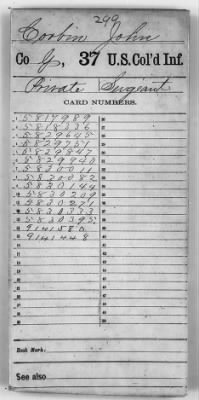 299
Corbin John
Co G, 37 U.S. Col'd Inf.
Private Sergeant
CARD NUMBERS.
1 5817989
2 5818336
3 5829645
4 5829751
5 5829847
6 5829940
7 5830011
8 5830082
9 5830144
10 5830209
11 5830271
12 5830333
13 5830395
14 9141580
15 9141448
Book Mark:
See also